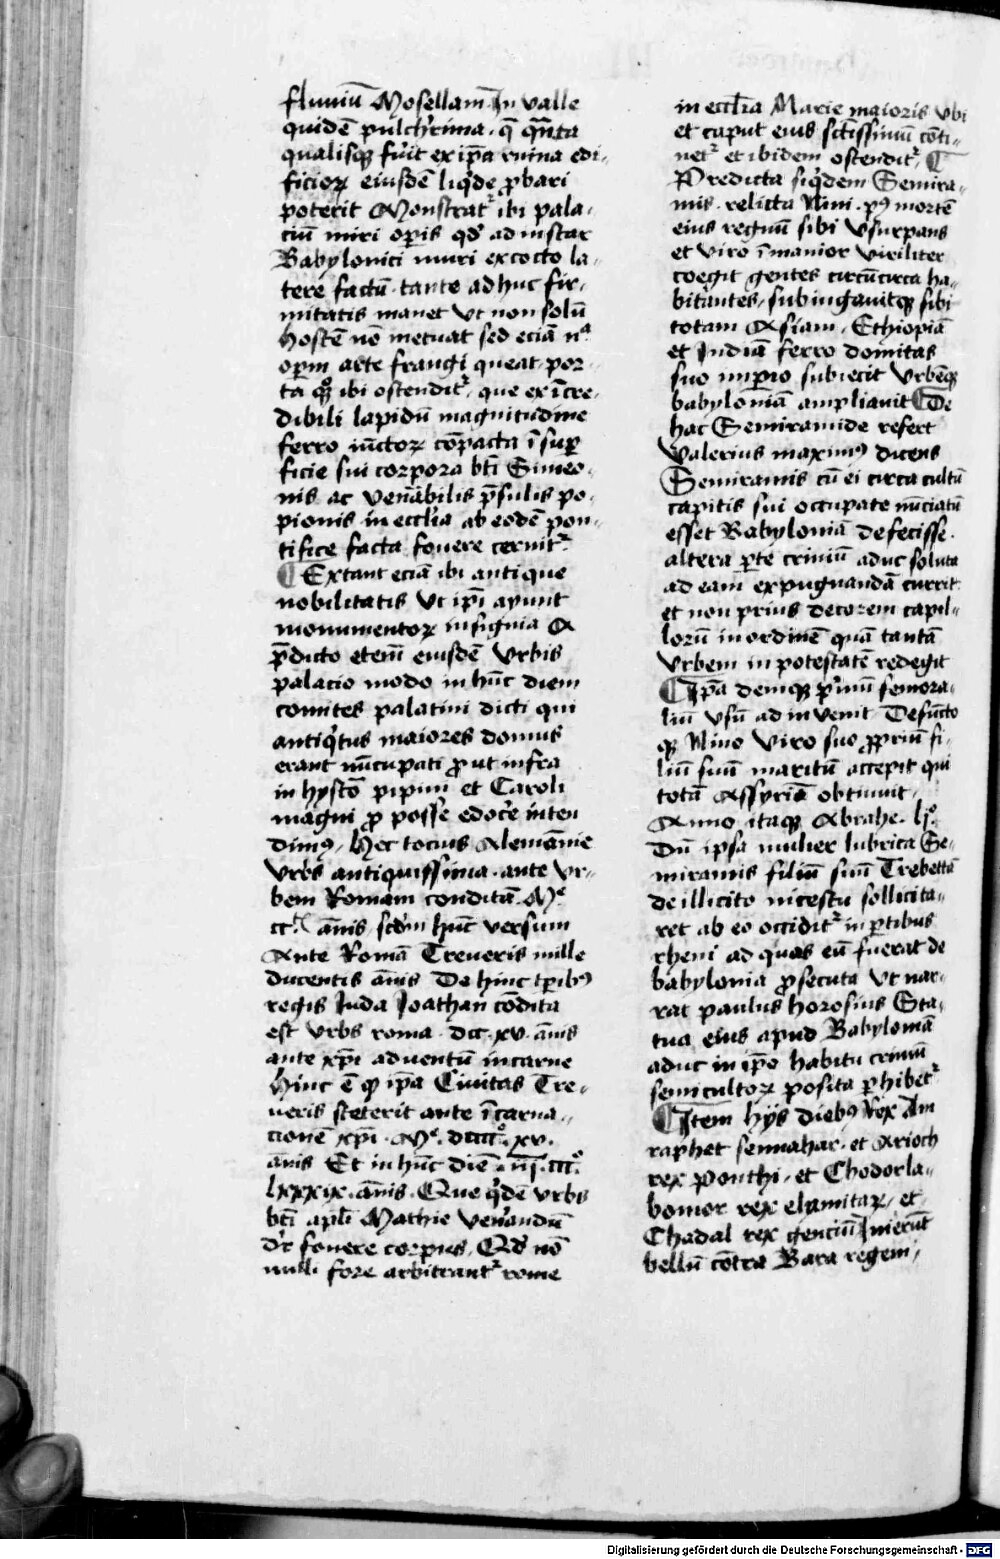 fluuiū Mosellam In valle
quidē pulch'rima q̄ qn̄ta
qualisq̨ fuit ex ip̄a ruina edi-
ficioꝝ eiusdē liq'de ꝓbari
poterit Monstrat᷑ ibi pala-
ciū miri oꝑis qd' ad instar
Babylonici muri ex cocto la-
tere factū tante adhuc fir-
mitatis manet vt non solū
hostē nō metuat sed eciā nͣ
oꝑm arte frangi queat por-
ta qͦꝫ ibi ostendit᷑ que ex īcre-
dibili lapidū magnitudine
ferro iūctoꝝ cōpacta ī suꝑ
ficie sui corpora bt̄i Simeo-
nis ac ven'abilis p̄sulis po-
pionis in eccl'ia ab eodē pon-
tifice facta fouere cernit᷑
¶ Extant eciā ibi antique
nobilitatis vt ip̄i ayunt
monumentoꝝ insignia &
p̄dicto etem̄ eiusdē vrbis
palacio modo in hūc diem
comites palatini dicti qui
antiq'tus maiores domus
erant nūcupati ꝓut infra
in hystō pipini et Caroli
magni ꝓ posse edoc'e inten
dimꝰ Hec tocius Alemānie
vrbs antiquissima ante vr-
bem Romam conditā Mͨ
ccͭˡ ānis scd'm hūc versum
Ante Romā Treueris mille
ducentis ānis De hinc tꝑibꝰ
regis Iuda Ioathan cōdita
est vrbs roma dcc xv ānis
ante xp̄i aduentū in carne
Hinc ē ꝙ ip̄a Ciuitas Tre-
ueris steterit ante īcarna-
cionē xp̄i Mͨ dcccͦ xv
ānis Et in hūc diē cccͦ
lxxxix ānis Que q'dē vrbs
bt̄i apl̄i Mathie ven'andū
dr̄ fouere corpus Qd' nō
nulli fore arbitrant᷑ rome
in eccl'ia Marie maioris vbi
et caput eius sct̄issimū cōti-
net᷑ et ibidem ostendit᷑ ¶
Predicta siq'dem Semira-
mis relicta Nini pꝰ mortē
eius regnū sibi vsurpans
et viro īmanior viriliter
coegit gentes circūcirca ha-
bitantes subiugauitq̨ sibi
totam Asiam Ethiopiā
et Indiā ferro domitas
suo imꝑio subiecit vrbēq̨
babyloniā ampliauit ¶ De
hac Semiramide refert
Valerius maximꝰ dicens
Semiramis cū ei circa cultū
capitis sui occupate nūciatū
esset Babyloniā defecisse
altera ꝑte criniū aduc soluta
ad eam expugnandā currit
et non prius decorem capil-
lorū in ordinē quā tantā
vrbem in potestatē redegit
¶ Ip̄a demq̨ p'mū femora-
liū vsū adinvenit Defūcto
q̨ Nino viro suo ꝓpriū fi-
liū suū maritū accepit qui
totā Assyriā obtinuit
Anno itaq̨ Abrahe ljͦ
Dū ipsa mulier lubrica Se-
miramis filiū suū Trebetā
de illicito incestu sollicita-
ret ab eo occidit᷑ in ꝑtibus
rheni ad quas eū fuerat de
babylonia ꝓsecuta vt nar-
rat paulus horosius Sta-
tua eius apud Babyloniā
aduc in ip̄o habitu criniū
semicultoꝝ posita ꝑhibet᷑
¶ Item hijs diebꝰ Rex Am
raphet sennahar et Arioch
rex Ponthi et Chodorla-
homor rex elamitaꝝ et
Chadal rex genciū Inierūt
bellū cōtra Bara regem
Digitalisierung gefördert durch die Deutsche Forschungsgemeinschaft - DFG